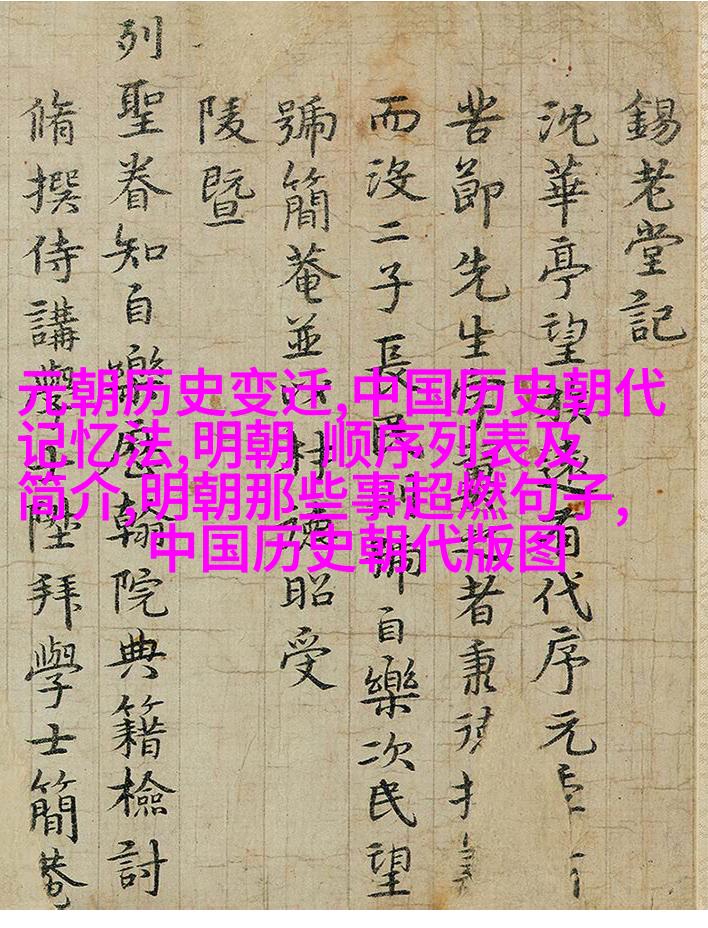 錫老堂記
沈華亭望 代序元
苦節先生 者秉
而沒二子長民 號自樂次民望
號簡菴並 昭受
陵暨
列聖眷知自樂歷翰院典籍檢討
脩撰侍講學士陞拜學士簡菴
元朝历史变迁,中国历史朝代
记忆法,明朝 顺序列表及
简介,明朝那些事超燃句子,
中国历史朝代版图